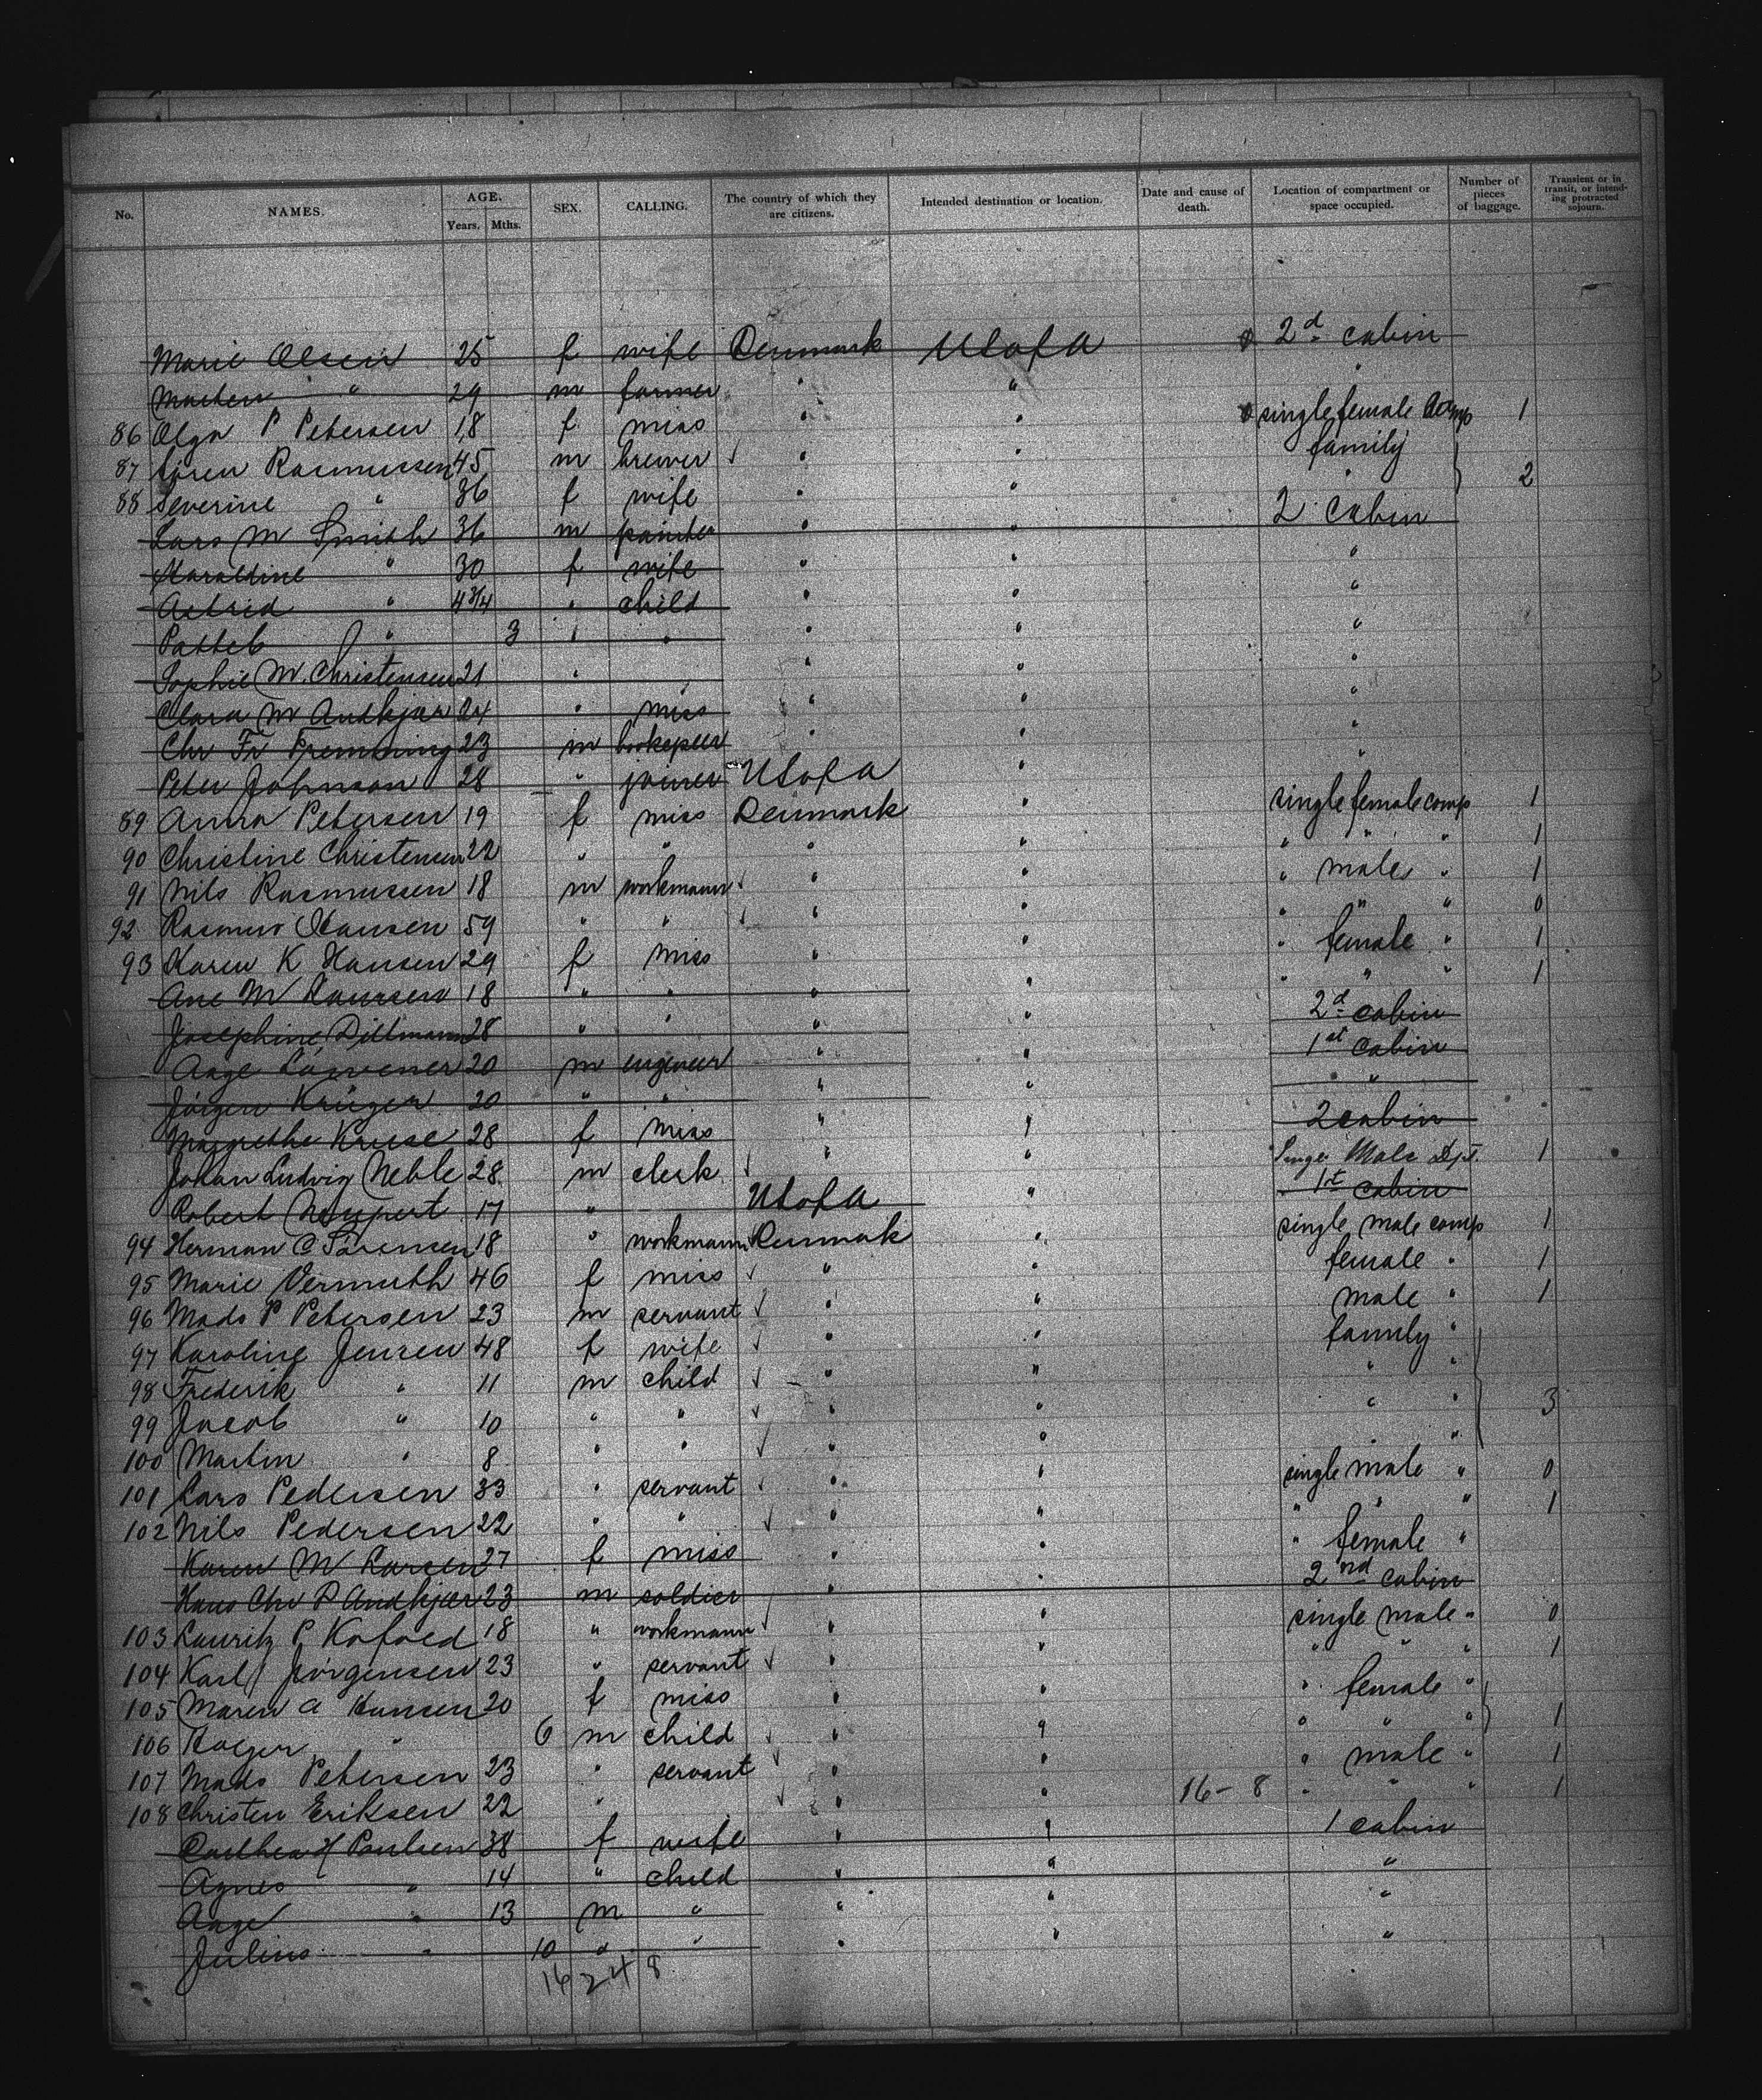 No. NAMES. AGE. Years. Mths. SEX. CALLING. The country of which they are citizens. Intended destination or location. Date and cause of death. Location of compartment or space occupied. Number of pieces of baggage. Transient or in transit, or intending protracted sojourn.
Marie Olsen 25 f wife Denmark UtofA 2d cabin
Morten " 29 m farmer " " "
86 Olga P Petersen 18 f miss " " single female Comp 1
87 Sören Rasmussen 45 m brewer " " family
88 Severine " 36 f wife " " " 2
Lars M Smith 36 m painter " " 2 Cabin
Haraldine " 30 f wife " " "
Astrid " 4 3/4 " child " " "
" 3 " " " " "
Sophie M. Christensen 21 " " " " "
Clara M Andkjær 24 " miss " " "
Chr Fr Fremming 23 m bookepeer " " "
Peter Johnson 28 " joiner UtofA " "
89 Anna Petersen 19 f miss Denmark " single female comp 1
90 Christine Christensen 22 " " " " " " " 1
91 Nils Rasmussen 18 m workmann " " " male " 1
92 Rasmus Hansen 59 " " " " " " " 0
93 Karen K Hansen 29 f miss " " " female " 1
Ane M Laursen 18 " " " " " " " 1
Josephine Dittmann 28 " " " " 2d cabin
Aage Lövener 20 m engeneer " " 1st cabin
Jörgen Krüger 20 " " " " "
Margrethe Kruse 28 f miss " " 2 cabin
Johan Ludvig Neble 28 m clerk " " Single Male Dpt. 1
Robert 17 " UtofA " 1st cabin
94 Herman C Sörensen 18 " workmann Denmark " single male comp 1
95 Marie Vermuth 46 f miss " " female " 1
96 Mads P Petersen 23 m servant " " male " 1
97 Karoline Jensen 48 f wife " " family "
98 Frederik " 11 m child " " " "
99 Jacob " 10 " " " " " " 3
100 Martin " 8 " " " " " "
101 Lars Pedersen 33 " servant " " single male " 0
102 Nils Pedersen 22 " " " " " " " 1
Karen M Larsen 27 f miss " " " female "
Hans Chr P Andkjær 23 m soldier " " 2nd cabin
103 Lauritz P Kofoed 18 " workmann " " single male " 0
104 Karl Jörgensen 23 " servant " " " " " 1
105 Maren A Hansen 20 f miss " " " female "
106 Holger " 6 m child " " " " " 1
107 Mads Petersen 23 " servant " " " male " 1
108 Christen Eriksen 22 " " " 16 - 8 " " " 1
H Poulsen 38 f wife " " 1 cabin
Agnes " 14 " child " " "
Aage " 13 m " " " "
Julius " 10 " " " " "
16 24 8